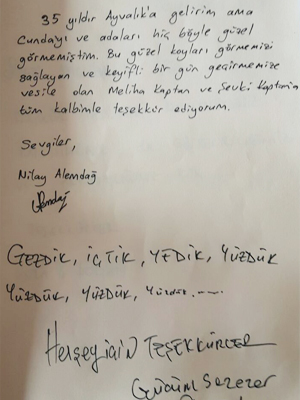 35 yıldır Ayvalık'a gelirim ama
Cundayı ve adaları hiç böyle güzel
görmemiştim. Bu güzel koyları görmemizi
sağlayan ve keyifli bir gün geçirmemize
vesile olan Meliha Kaptan ve Şevki Kaptan'a
tüm kalbimle teşekkür ediyorum.
Sevgiler,
Nilay Alemdağ
GEZDİK, İÇTİK, YEDİK, YÜZDÜK
YÜZDÜK, YÜZDÜK, YÜZDÜK.....
Herşey için TEŞEKKÜRLER